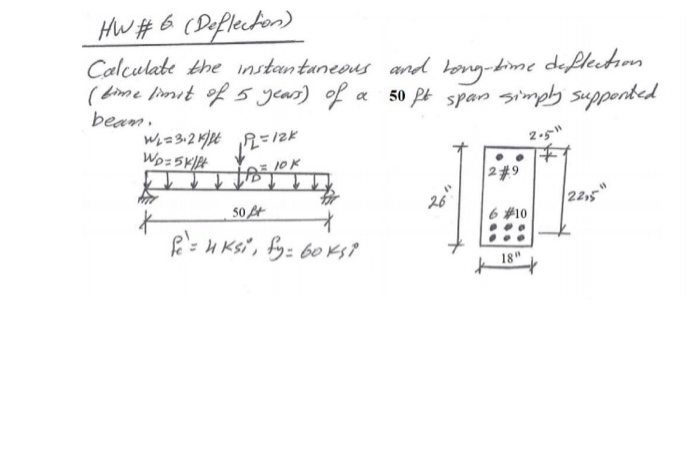 HW# 6 (Deflection)
Calculate the instantaneous and Long-time deflection
(time limit of 5 years) of a 50 ft span simply supported
beam.
WL=3.2K/ft PL=12K
WD=5K/ft PD=10K
50 ft
f'c=4Ksi, fy=60Ksi
2.5"
2#9
26"
22.5"
6 #10
18"